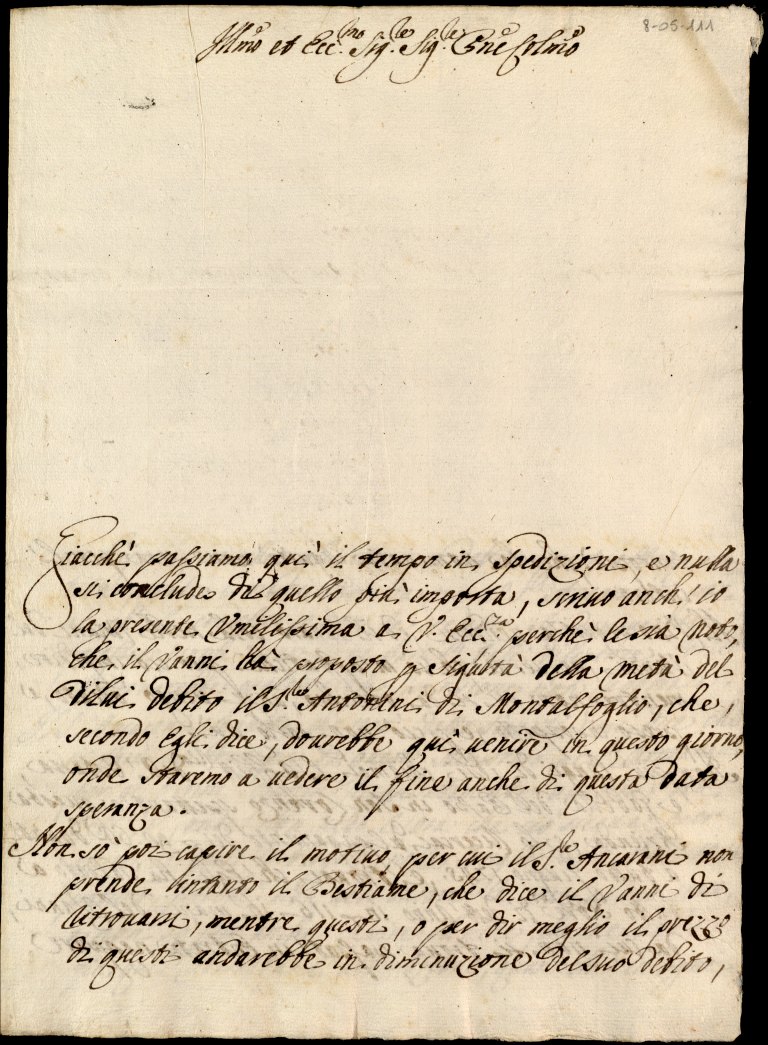 8-05-111
Illmo et Ecc.mo Sig.re Sig.re Pne Colmo
Giacchè passiamo quì il tempo in spedizioni, e nulla
si conclude di quello più importa, scrivo anch'io
la presente Umilissima a V. Ecc.za perchè le sia noto,
che il Vanni hà proposto p Sigurtà della metà del
dilui debito il S.re Antonini di Montalfoglio, che,
secondo Egli dice, dovrebbe quì venire in questo giorno,
onde staremo a vedere il fine anche di questa data
speranza.
Non sò poi capire il motivo, per cui il S.re Ancarani non
prende intanto il Bestiame, che dice il Vanni di
ritrovarsi, mentre questi, o per dir meglio il prezzo
di questi andarebbe in diminuzione del suo debito,